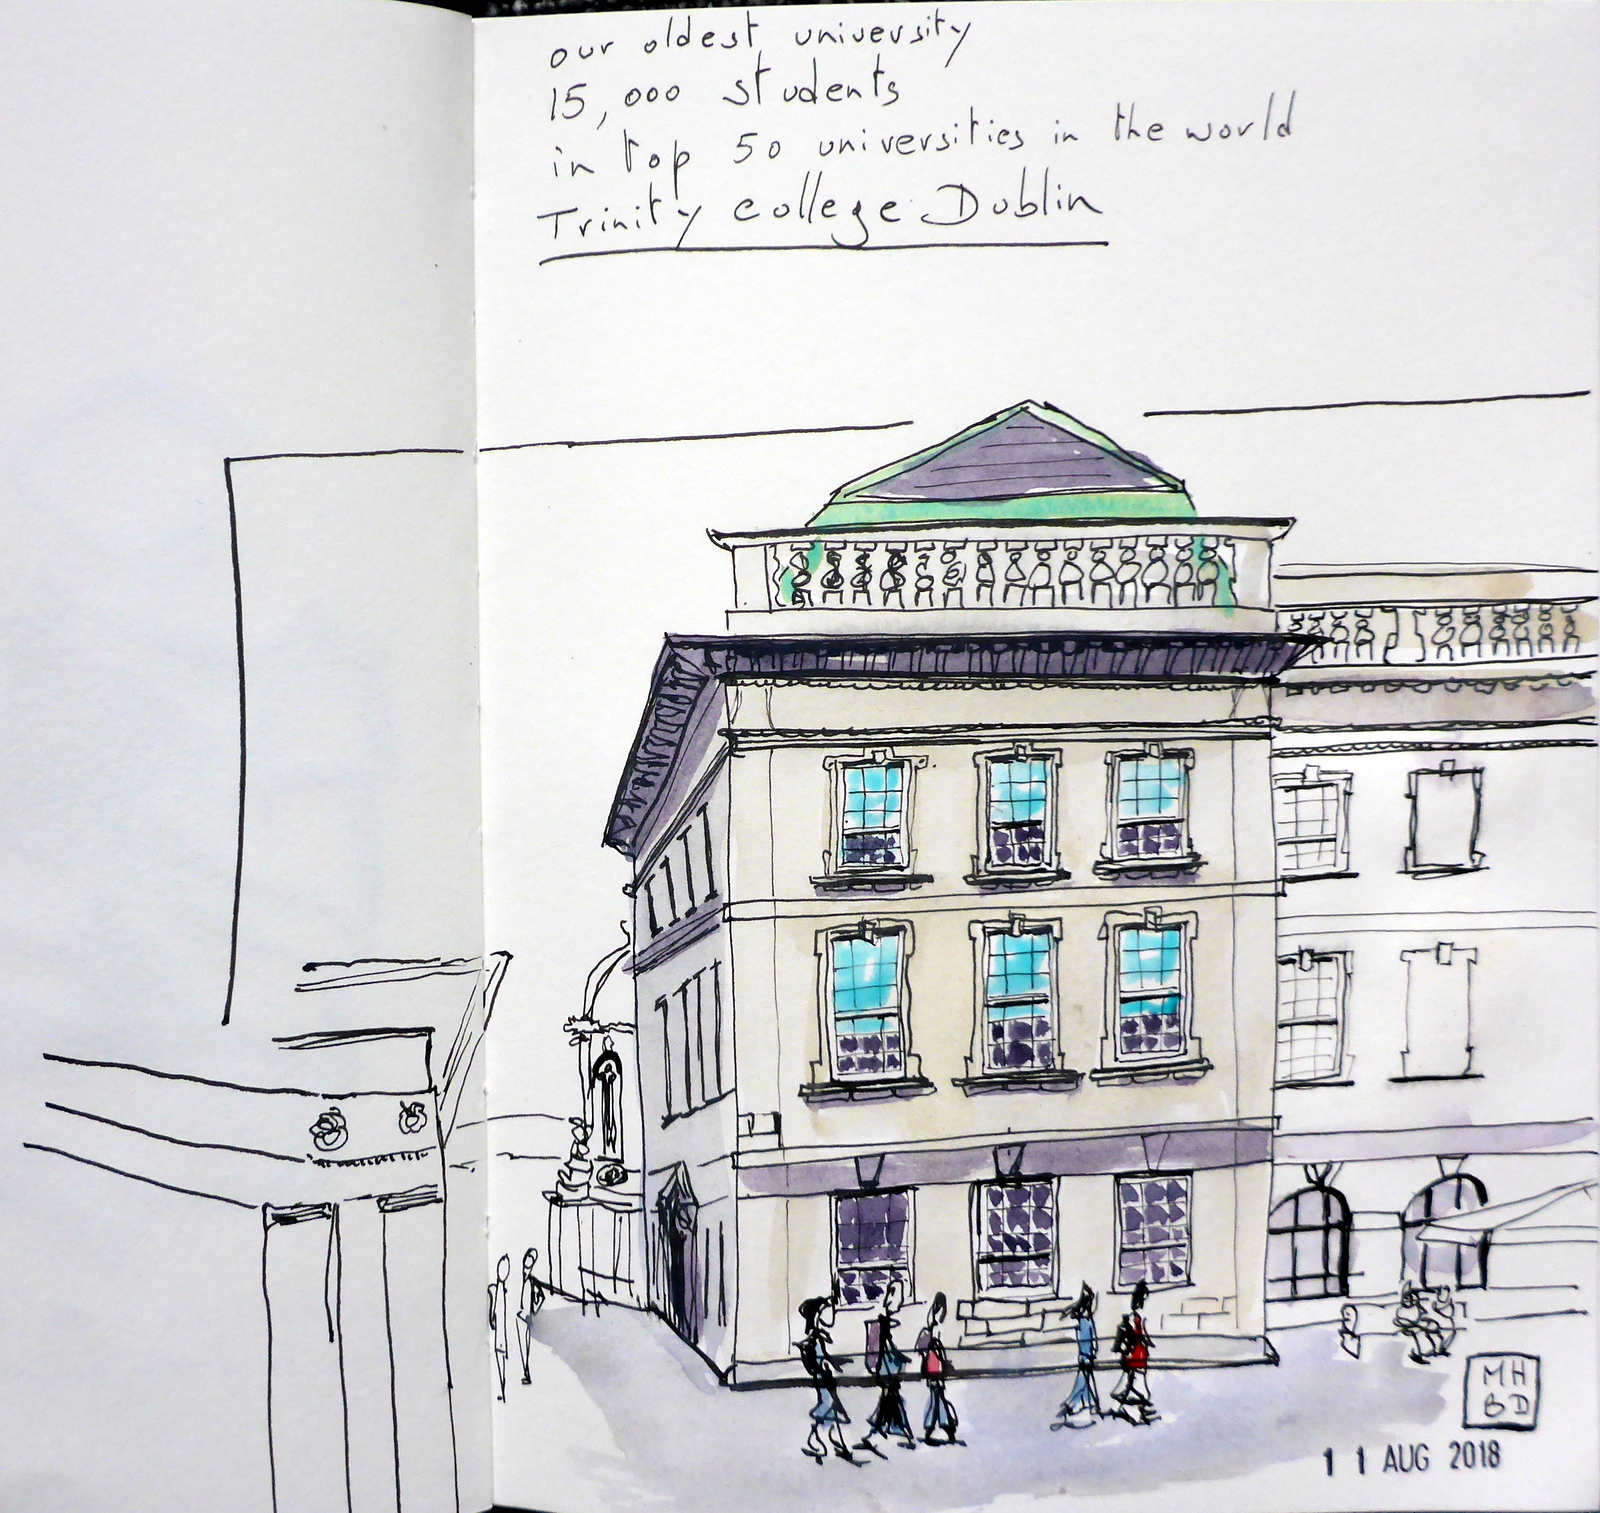 our oldest university
15,000 students
in top 50 universities in the world
Trinity college Dublin
MH
BD
11 AUG 2018